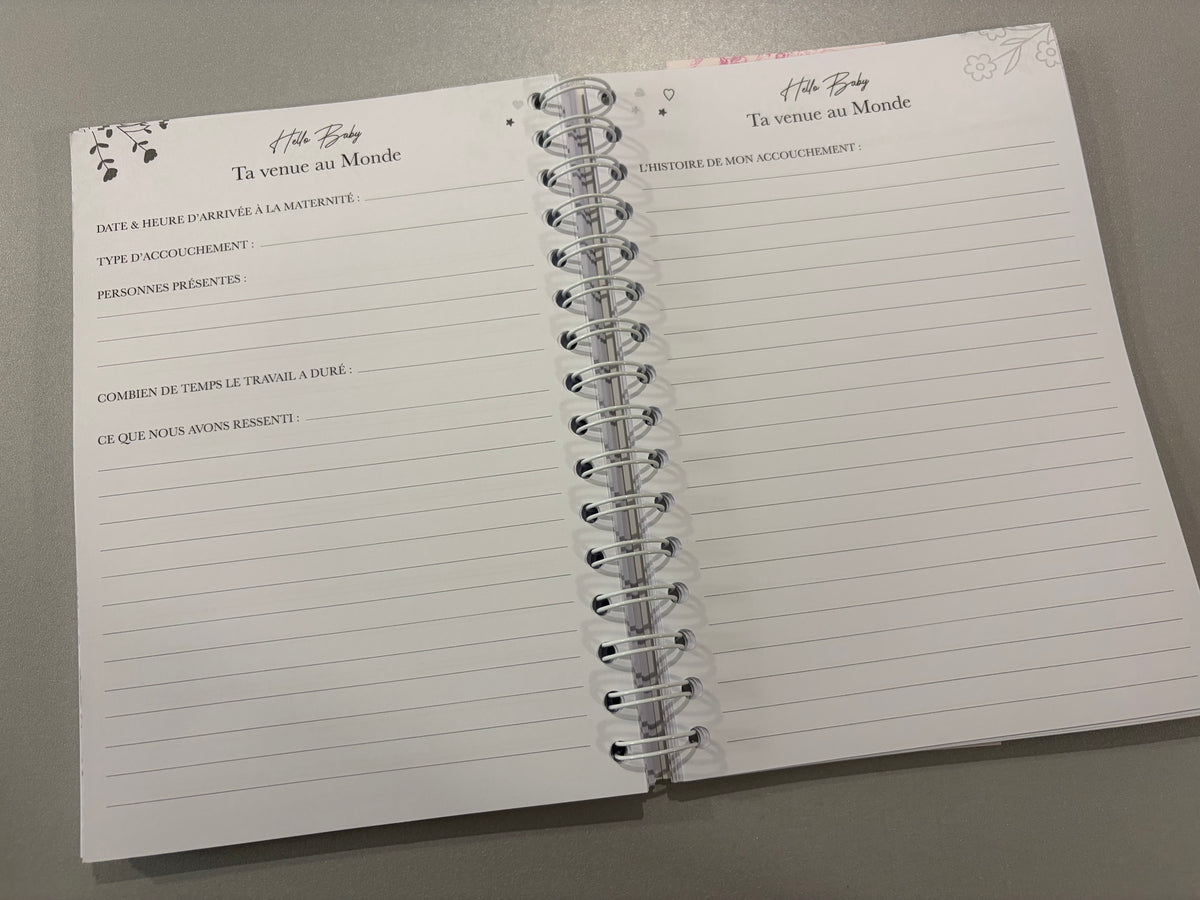 Hello Baby
Ta venue au Monde
DATE & HEURE D'ARRIVÉE À LA MATERNITÉ :
TYPE D'ACCOUCHEMENT :
PERSONNES PRÉSENTES :
COMBIEN DE TEMPS LE TRAVAIL A DURÉ :
CE QUE NOUS AVONS RESSENTI :
Hello Baby
Ta venue au Monde
L'HISTOIRE DE MON ACCOUCHEMENT :